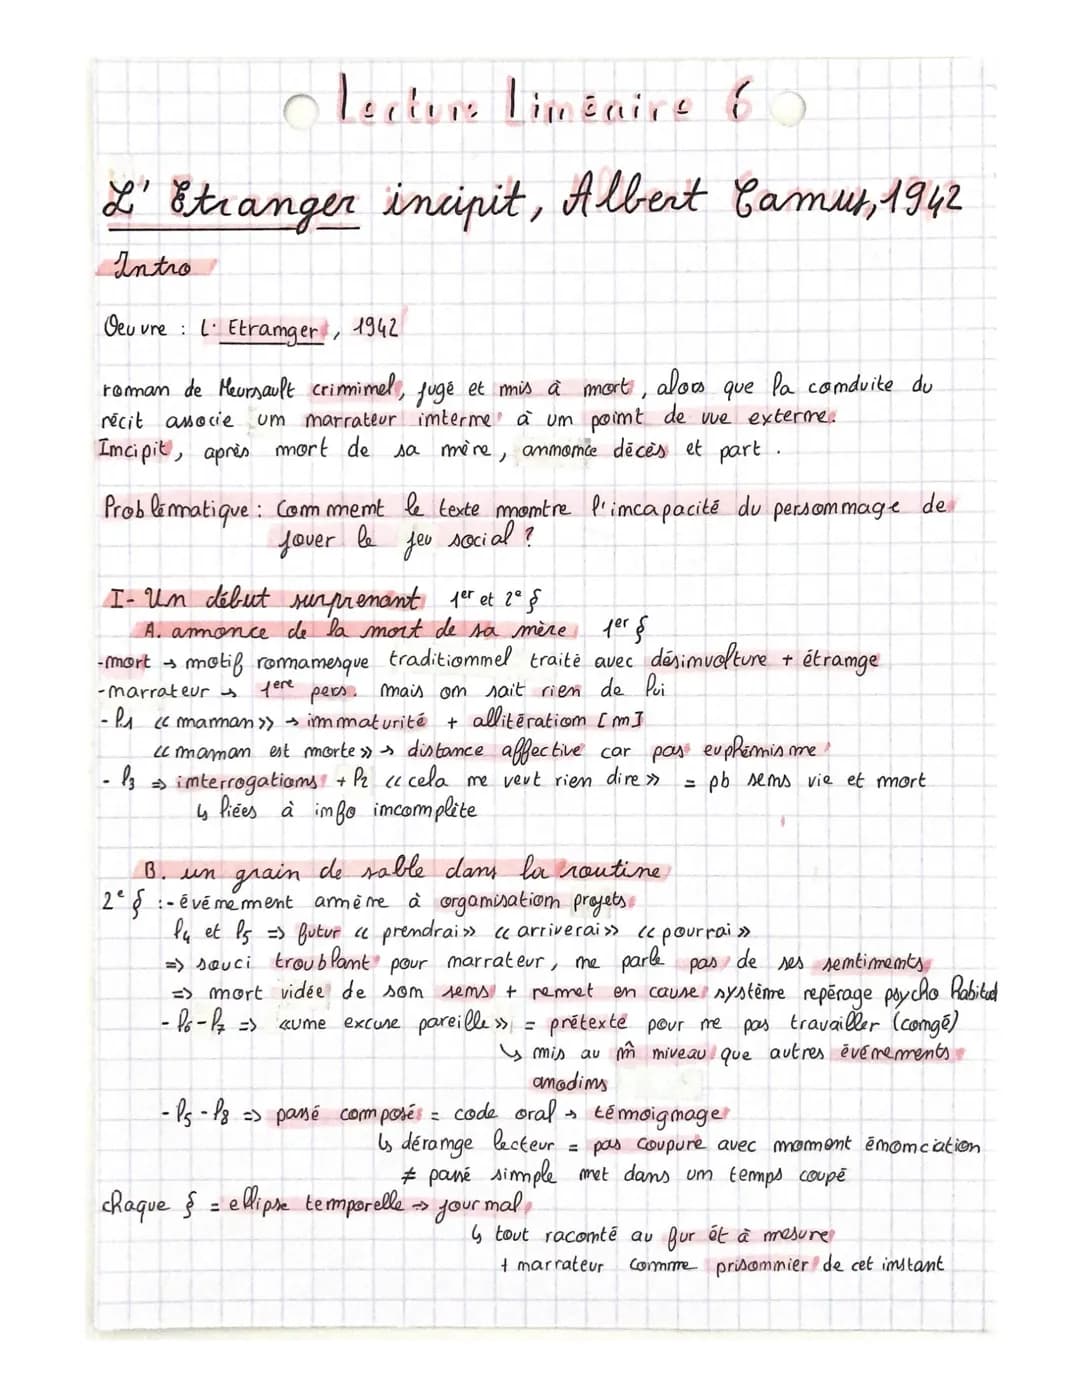 Lecture Linéaire 6
L' Etranger incipit, Albert Camus, 1942
Intro
Oeuvre : L' Etranger, 1942
roman de Meursault criminel, jugé et mis à mort, alors que la conduite du
récit associe un narrateur interne à un point de vue externe.
Incipit, après mort de sa mère, annonce décès et part.
Problématique : Comment le texte montre l'incapacité du personnage de
jouer le jeu social ?
I- Un début surprenant 1er et 2e §
A. annonce de la mort de sa mère 1er §
-mort → motif romanesque traditionnel traité avec désinvolture + étrange
-narrateur → 1ere pers. mais on sait rien de lui
- l1 « maman » → immaturité + allitération [m]
« maman est morte » → distance affective car pas euphémisme
- l3 ⇒ interrogations + l2 « cela ne veut rien dire » = pb sens vie et mort
↳ liées à info incomplète
B. un grain de sable dans la routine
2e § :- événement amène à organisation projets
l4 et l5 => futur « prendrai » « arriverai » « pourrai »
=> souci troublant pour narrateur, ne parle pas de ses sentiments
=> mort vidée de son sens + remet en cause système repérage psycho habituel
- l6 - l7 => « une excuse pareille » = prétexte pour ne pas travailler (congé)
↳ mis au m̂ niveau que autres événements
anodins
- l5 - l8 => passé composés = code oral → témoignage
↳ dérange lecteur = pas coupure avec moment énonciation
≠ passé simple met dans un temps coupé
chaque § = ellipse temporelle → journal
↳ tout raconté au fur et à mesure
+ narrateur comme prisonnier de cet instant